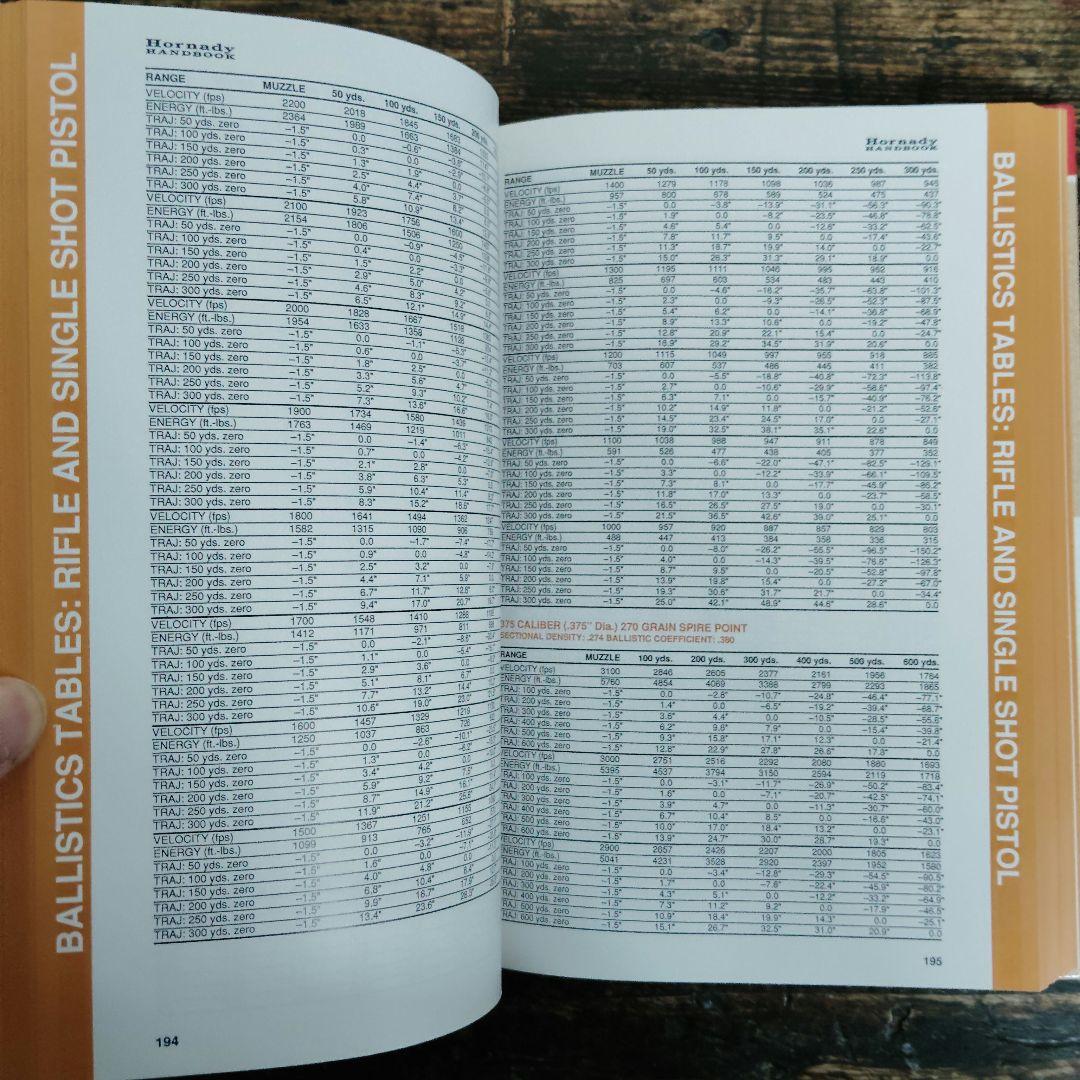 BALLISTICS TABLES: RIFLE AND SINGLE SHOT PISTOL
Hornady
HANDBOOK
RANGE MUZZLE 50 yds. 100 yds. 150 yds.
VELOCITY (fps) 2200 2018 1845 1683
ENERGY (ft.-lbs.) 2364 1989 1663 1384
TRAJ: 50 yds. zero −1.5" 0.0 −0.6"
TRAJ: 100 yds. zero −1.5" 0.3" 0.0
TRAJ: 150 yds. zero −1.5" 1.3" 1.9" 0.0
TRAJ: 200 yds. zero −1.5" 2.5" 4.4"
TRAJ: 250 yds. zero −1.5" 4.0" 7.4"
TRAJ: 300 yds. zero −1.5" 5.8" 10.9"
VELOCITY (fps) 2100 1923 1756 1600
ENERGY (ft.-lbs.) 2154 1806 1506 1250
TRAJ: 50 yds. zero −1.5" 0.0 −0.9"
TRAJ: 100 yds. zero −1.5" 0.4" 0.0
TRAJ: 150 yds. zero −1.5" 1.5" 2.2" 0.0
TRAJ: 200 yds. zero −1.5" 2.9" 5.0"
TRAJ: 250 yds. zero −1.5" 4.6" 8.3"
TRAJ: 300 yds. zero −1.5" 6.5" 12.1"
VELOCITY (fps) 2000 1828 1667 1518
ENERGY (ft.-lbs.) 1954 1633 1358 1126
TRAJ: 50 yds. zero −1.5" 0.0 −1.1"
TRAJ: 100 yds. zero −1.5" 0.6" 0.0
TRAJ: 150 yds. zero −1.5" 1.8" 2.5" 0.0
TRAJ: 200 yds. zero −1.5" 3.3" 5.6" 4.7"
TRAJ: 250 yds. zero −1.5" 5.2" 9.3" 10.2"
TRAJ: 300 yds. zero −1.5" 7.3" 13.6" 16.6"
VELOCITY (fps) 1900 1734 1580 1436
ENERGY (ft.-lbs.) 1763 1469 1219 1011
TRAJ: 50 yds. zero −1.5" 0.0 −1.4"
TRAJ: 100 yds. zero −1.5" 0.7" 0.0 −4.2"
TRAJ: 150 yds. zero −1.5" 2.1" 2.8" 0.0
TRAJ: 200 yds. zero −1.5" 3.8" 6.3" 5.3"
TRAJ: 250 yds. zero −1.5" 5.9" 10.4" 11.4"
TRAJ: 300 yds. zero −1.5" 8.3" 15.2" 18.6"
VELOCITY (fps) 1800 1641 1494 1362
ENERGY (ft.-lbs.) 1582 1315 1090 906
TRAJ: 50 yds. zero −1.5" 0.0 −1.7" −7.4"
TRAJ: 100 yds. zero −1.5" 0.9" 0.0 −4.8"
TRAJ: 150 yds. zero −1.5" 2.5" 3.2" 0.0
TRAJ: 200 yds. zero −1.5" 4.4" 7.1" 5.9"
TRAJ: 250 yds. zero −1.5" 6.7" 11.7" 12.8"
TRAJ: 300 yds. zero −1.5" 9.4" 17.0" 20.7"
VELOCITY (fps) 1700 1548 1410 1288
ENERGY (ft.-lbs.) 1412 1171 971 811
TRAJ: 50 yds. zero −1.5" 0.0 −2.1" −8.6"
TRAJ: 100 yds. zero −1.5" 1.1" 0.0 −5.4"
TRAJ: 150 yds. zero −1.5" 2.9" 3.6" 0.0
TRAJ: 200 yds. zero −1.5" 5.1" 8.1" 6.7"
TRAJ: 250 yds. zero −1.5" 7.7" 13.2" 14.4"
TRAJ: 300 yds. zero −1.5" 10.6" 19.0" 23.0"
VELOCITY (fps) 1600 1457 1329 1219
ENERGY (ft.-lbs.) 1250 1037 863 726
TRAJ: 50 yds. zero −1.5" 0.0 −2.6" −10.1"
TRAJ: 100 yds. zero −1.5" 1.3" 0.0 −6.2"
TRAJ: 150 yds. zero −1.5" 3.4" 4.2" 0.0
TRAJ: 200 yds. zero −1.5" 5.9" 9.2" 7.5"
TRAJ: 250 yds. zero −1.5" 8.7" 14.9" 16.1"
TRAJ: 300 yds. zero −1.5" 11.9" 21.2"
VELOCITY (fps) 1500 1367 1251 1155
ENERGY (ft.-lbs.) 1099 913 765 652
TRAJ: 50 yds. zero −1.5" 0.0 −3.2" −11.9"
TRAJ: 100 yds. zero −1.5" 1.6" 0.0 −7.1"
TRAJ: 150 yds. zero −1.5" 4.0" 4.8" 0.0
TRAJ: 200 yds. zero −1.5" 6.8" 10.4"
TRAJ: 250 yds. zero −1.5" 9.9" 16.7"
TRAJ: 300 yds. zero −1.5" 13.4" 23.6"
194
Hornady
HANDBOOK
RANGE MUZZLE 50 yds. 100 yds. 150 yds. 200 yds. 250 yds. 300 yds.
VELOCITY (fps) 1400 1279 1178 1098 1036 987 945
ENERGY (ft.-lbs.) 957 800 678 589 524 475 437
TRAJ: 50 yds. zero −1.5" 0.0 −3.8" −13.9" −31.1" −56.3" −90.3"
TRAJ: 100 yds. zero −1.5" 1.9" 0.0 −8.2" −23.5" −46.8" −78.8"
TRAJ: 150 yds. zero −1.5" 4.6" 5.4" 0.0 −12.6" −33.2" −62.5"
TRAJ: 200 yds. zero −1.5" 7.8" 11.7" 9.5" 0.0 −17.4" −43.6"
TRAJ: 250 yds. zero −1.5" 11.3" 18.7" 19.9" 14.0" 0.0 −22.7"
TRAJ: 300 yds. zero −1.5" 15.0" 26.3" 31.3" 29.1" 18.9" 0.0
VELOCITY (fps) 1300 1195 1111 1046 995 952 916
ENERGY (ft.-lbs.) 825 697 603 534 483 443 410
TRAJ: 50 yds. zero −1.5" 0.0 −4.6" −16.2" −35.7" −63.8" −101.3"
TRAJ: 100 yds. zero −1.5" 2.3" 0.0 −9.3" −26.5" −52.3" −87.5"
TRAJ: 150 yds. zero −1.5" 5.4" 6.2" 0.0 −14.1" −36.8" −68.9"
TRAJ: 200 yds. zero −1.5" 8.9" 13.3" 10.6" 0.0 −19.2" −47.8"
TRAJ: 250 yds. zero −1.5" 12.8" 20.9" 22.1" 15.4" 0.0 −24.7"
TRAJ: 300 yds. zero −1.5" 16.9" 29.2" 34.5" 31.9" 20.6" 0.0
VELOCITY (fps) 1200 1115 1049 997 955 918 885
ENERGY (ft.-lbs.) 703 607 537 486 445 411 382
TRAJ: 50 yds. zero −1.5" 0.0 −5.5" −18.8" −40.8" −72.3" −113.8"
TRAJ: 100 yds. zero −1.5" 2.7" 0.0 −10.6" −29.9" −58.6" −97.4"
TRAJ: 150 yds. zero −1.5" 6.3" 7.1" 0.0 −15.7" −40.9" −76.2"
TRAJ: 200 yds. zero −1.5" 10.2" 14.9" 11.8" 0.0 −21.2" −52.6"
TRAJ: 250 yds. zero −1.5" 14.5" 23.4" 24.5" 17.0" 0.0 −27.1"
TRAJ: 300 yds. zero −1.5" 19.0" 32.5" 38.1" 35.1" 22.6" 0.0
VELOCITY (fps) 1100 1038 988 947 911 878 849
ENERGY (ft.-lbs.) 591 526 477 438 405 377 352
TRAJ: 50 yds. zero −1.5" 0.0 −6.6" −22.0" −47.1" −82.5" −129.1"
TRAJ: 100 yds. zero −1.5" 3.3" 0.0 −12.2" −33.9" −66.1" −109.5"
TRAJ: 150 yds. zero −1.5" 7.3" 8.1" 0.0 −17.7" −45.9" −85.2"
TRAJ: 200 yds. zero −1.5" 11.8" 17.0" 13.3" 0.0 −23.7" −58.5"
TRAJ: 250 yds. zero −1.5" 16.5" 26.5" 27.5" 19.0" 0.0 −30.1"
TRAJ: 300 yds. zero −1.5" 21.5" 36.5" 42.6" 39.0" 25.1" 0.0
VELOCITY (fps) 1000 957 920 887 857 829 803
ENERGY (ft.-lbs.) 488 447 413 384 358 336 315
TRAJ: 50 yds. zero −1.5" 0.0 −8.0" −26.2" −55.5" −96.5" −150.2"
TRAJ: 100 yds. zero −1.5" 4.0" 0.0 −14.3" −39.5" −76.6" −126.3"
TRAJ: 150 yds. zero −1.5" 8.7" 9.5" 0.0 −20.5" −52.8" −97.8"
TRAJ: 200 yds. zero −1.5" 13.9" 19.8" 15.4" 0.0 −27.2" −67.0"
TRAJ: 250 yds. zero −1.5" 19.3" 30.6" 31.7" 21.7" 0.0 −34.4"
TRAJ: 300 yds. zero −1.5" 25.0" 42.1" 48.9" 44.6" 28.6" 0.0
375 CALIBER (.375" Dia.) 270 GRAIN SPIRE POINT
SECTIONAL DENSITY: .274 BALLISTIC COEFFICIENT: .380
RANGE MUZZLE 100 yds. 200 yds. 300 yds. 400 yds. 500 yds. 600 yds.
VELOCITY (fps) 3100 2846 2605 2377 2161 1956 1764
ENERGY (ft.-lbs.) 5760 4854 4069 3388 2799 2293 1865
TRAJ: 100 yds. zero −1.5" 0.0 −2.8" −10.7" −24.8" −46.4" −77.1"
TRAJ: 200 yds. zero −1.5" 1.4" 0.0 −6.5" −19.2" −39.4" −68.7"
TRAJ: 300 yds. zero −1.5" 3.6" 4.4" 0.0 −10.5" −28.5" −55.6"
TRAJ: 400 yds. zero −1.5" 6.2" 9.6" 7.9" 0.0 −15.4" −39.8"
TRAJ: 500 yds. zero −1.5" 9.3" 15.8" 17.1" 12.3" 0.0 −21.4"
TRAJ: 600 yds. zero −1.5" 12.8" 22.9" 27.8" 26.6" 17.3" 0.0
VELOCITY (fps) 3000 2751 2516 2292 2080 1880 1693
ENERGY (ft.-lbs.) 5395 4537 3794 3150 2594 2119 1718
TRAJ: 100 yds. zero −1.5" 0.0 −3.1" −11.7" −26.9" −50.2" −83.4"
TRAJ: 200 yds. zero −1.5" 1.6" 0.0 −7.1" −20.7" −42.5" −74.1"
TRAJ: 300 yds. zero −1.5" 3.9" 4.7" 0.0 −11.3" −30.7" −60.0"
TRAJ: 400 yds. zero −1.5" 6.7" 10.4" 8.5" 0.0 −16.6" −43.0"
TRAJ: 500 yds. zero −1.5" 10.0" 17.0" 18.4" 13.2" 0.0 −23.1"
TRAJ: 600 yds. zero −1.5" 13.9" 24.7" 30.0" 28.7" 19.3" 0.0
VELOCITY (fps) 2900 2657 2426 2207 2000 1805 1623
ENERGY (ft.-lbs.) 5041 4231 3528 2920 2397 1952 1580
TRAJ: 100 yds. zero −1.5" 0.0 −3.4" −12.8" −29.3" −54.5" −90.5"
TRAJ: 200 yds. zero −1.5" 1.7" 0.0 −7.6" −22.4" −45.9" −80.2"
TRAJ: 300 yds. zero −1.5" 4.3" 5.1" 0.0 −12.2" −33.2" −64.9"
TRAJ: 400 yds. zero −1.5" 7.3" 11.2" 9.2" 0.0 −17.9" −46.5"
TRAJ: 500 yds. zero −1.5" 10.9" 18.4" 19.9" 14.3" 0.0 −25.1"
TRAJ: 600 yds. zero −1.5" 15.1" 26.7" 32.5" 31.0" 20.9" 0.0
195
BALLISTICS TABLES: RIFLE AND SINGLE SHOT PISTOL